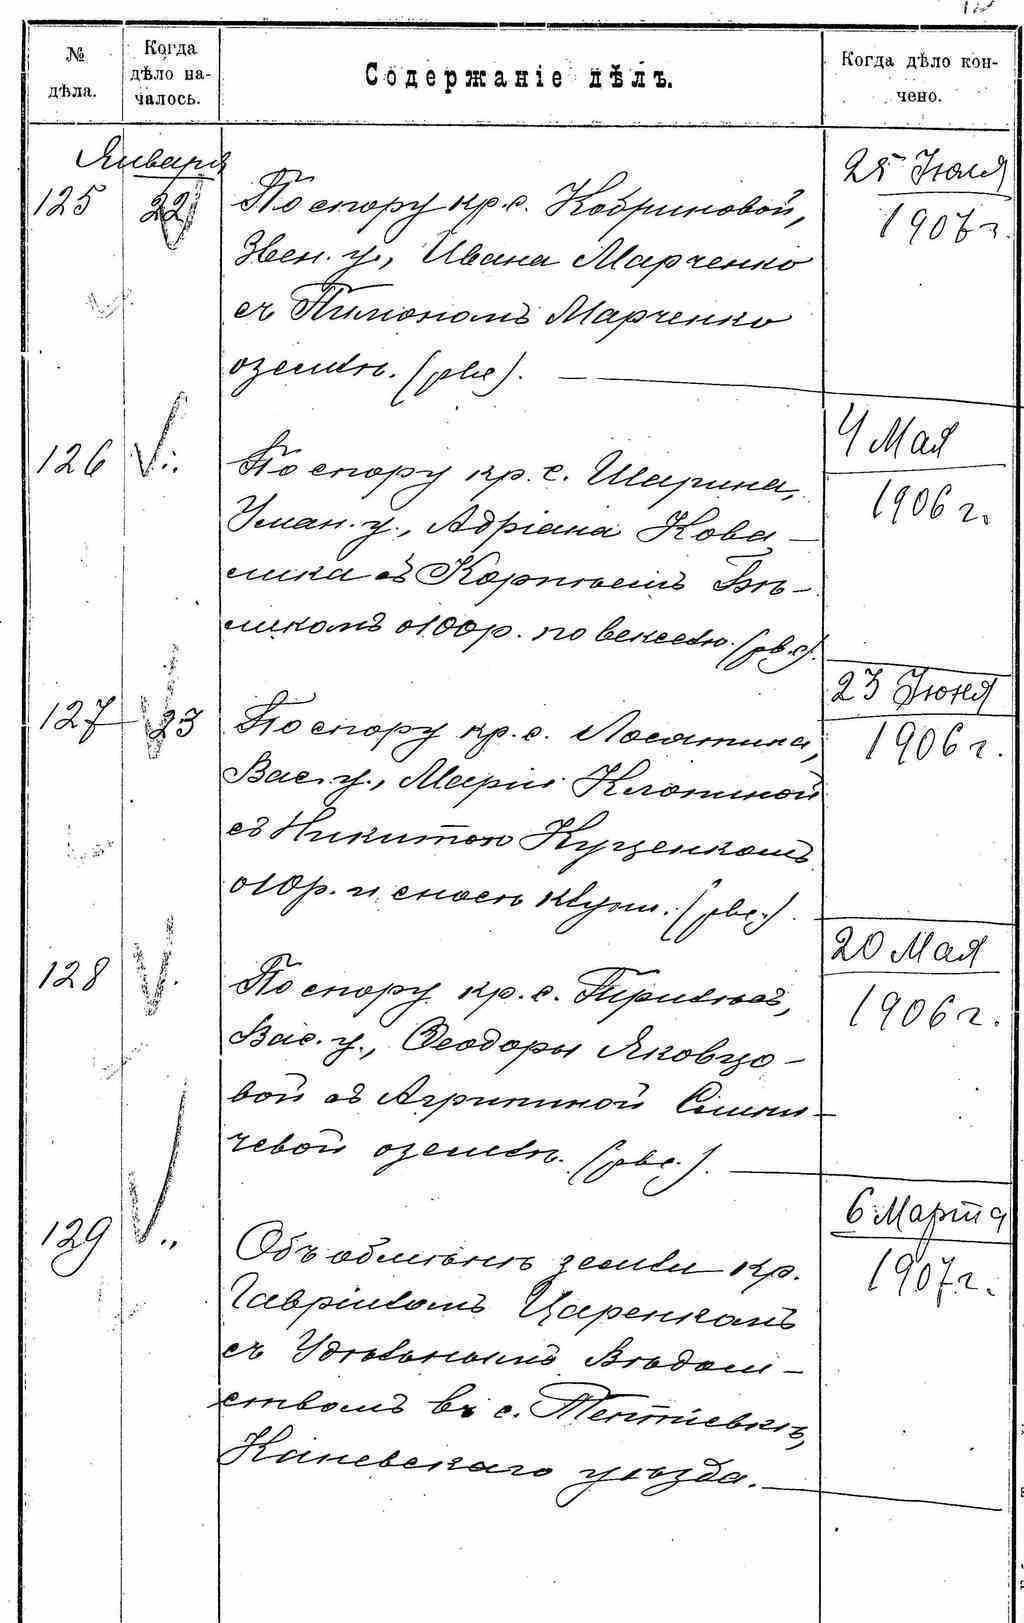 № дѣла.
Когда дѣло на-
чалось.
Содержаніе дѣлъ.
Когда дѣло кон-
чено.
Января
125 22 По спору кр. с. Кобриновой,
Звен. у., Ивана Марченко
съ Пимономъ Марченко
о землѣ. (рвс).
25 Юля
1906 г.
126 По спору кр. с. Шарина,
Уман. у., Адріана Кова-
лика съ Корнѣемъ Бѣ-
ликомъ о 100 р. по векселю. (рвс).
4 Мая
1906 г.
127 23 По спору кр. с. Лосятина,
Вас. у., Маріи Клопиной
съ Никитою Куценкомъ
о 10 р. и сносѣ клуни. (рвс.).
23 Июня
1906 г.
128 По спору кр. с.
Вас. у., Ѳеодоры Яковцо-
вой съ Агрипиной
чевой о землѣ. (рвс.).
20 Мая
1906 г.
129 Объ обмѣнѣ земли кр.
Гавріиломъ Царенкомъ
съ Удѣльнымъ Вѣдом-
ствомъ въ с. Тептіевкѣ,
Каневскаго уѣзда.
6 Марта
1907 г.